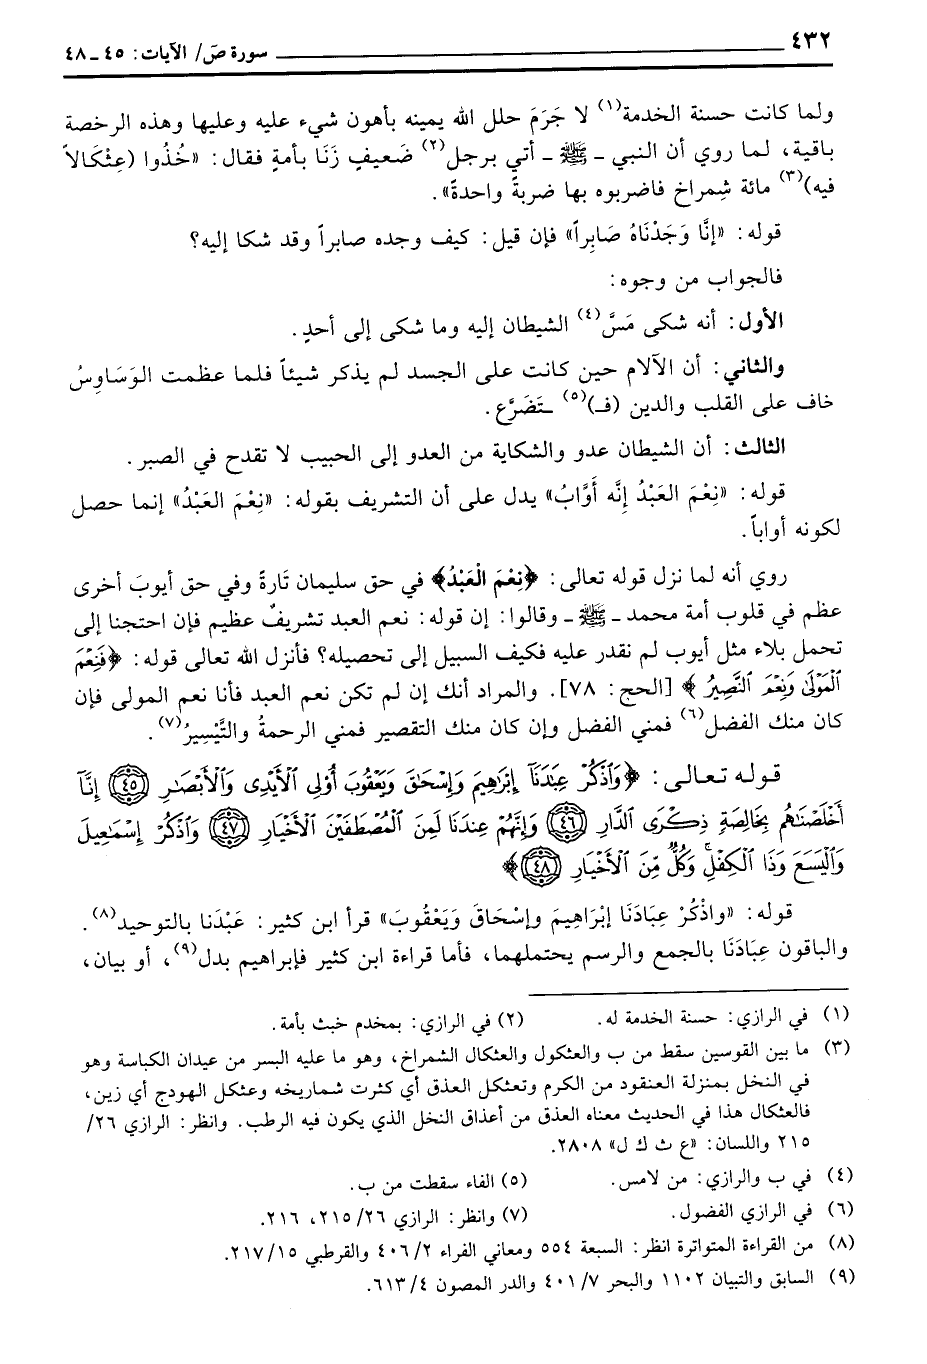 ٤٣٢ سورة صَ/ الآيات: ٤٥ ـ ٤٨
ولما كانت حسنة الخدمة(١) لا جَرَمَ حلل الله يمينه بأهون شيء عليه وعليها وهذه الرخصة
باقية، لما روي أن النبي ـ ﷺ ـ أتي برجل(٢) ضَعيفٍ زَنَا بأمةٍ فقال: «خُذُوا (عِثْكَالاً
فيه)(٣) مائة شِمراخ فاضربوه بها ضربةً واحدةً».
قوله: «إنَّا وَجَدْنَاهُ صَابِراً» فإن قيل: كيف وجده صابراً وقد شكا إليه؟
فالجواب من وجوه:
الأول: أنه شكى مَسَّ(٤) الشيطان إليه وما شكى إلى أحدٍ.
والثاني: أن الآلام حين كانت على الجسد لم يذكر شيئاً فلما عظمت الوَسَاوِسُ
خاف على القلب والدين (فـ)(٥) ـتَضَرَّع.
الثالث: أن الشيطان عدو والشكاية من العدو إلى الحبيب لا تقدح في الصبر.
قوله: «نِعْمَ العَبْدُ إنَّه أَوَّابٌ» يدل على أن التشريف بقوله: «نِعْمَ العَبْدُ» إنما حصل
لكونه أواباً.
روي أنه لما نزل قوله تعالى: ﴿نِعْمَ الْعَبْدُ﴾ في حق سليمان تَارةً وفي حق أيوبَ أخرى
عظم في قلوب أمة محمد ـ ﷺ ـ وقالوا: إن قوله: نعم العبد تشريفٌ عظيم فإن احتجنا إلى
تحمل بلاء مثل أيوب لم نقدر عليه فكيف السبيل إلى تحصيله؟ فأنزل الله تعالى قوله: ﴿فَنِعْمَ
ٱلْمَوْلَىٰ وَنِعْمَ ٱلنَّصِيرُ﴾ [الحج: ٧٨]. والمراد أنك إن لم تكن نعم العبد فأنا نعم المولى فإن
كان منك الفضل(٦) فمني الفضل وإن كان منك التقصير فمني الرحمةُ والتَّيْسِيرُ(٧).
قوله تعالى: ﴿وَٱذْكُرْ عِبَٰدَنَآ إِبْرَٰهِيمَ وَإِسْحَٰقَ وَيَعْقُوبَ أُوْلِى ٱلْأَيْدِى وَٱلْأَبْصَٰرِ (٤٥) إِنَّآ
أَخْلَصْنَٰهُم بِخَالِصَةٍ ذِكْرَى ٱلدَّارِ (٤٦) وَإِنَّهُمْ عِندَنَا لَمِنَ ٱلْمُصْطَفَيْنَ ٱلْأَخْيَارِ (٤٧) وَٱذْكُرْ إِسْمَٰعِيلَ
وَٱلْيَسَعَ وَذَا ٱلْكِفْلِ وَكُلٌّ مِّنَ ٱلْأَخْيَارِ (٤٨)﴾
قوله: «واذْكُرْ عِبَادَنَا إبْرَاهِيمَ وإسْحَاقَ وَيَعْقُوبَ» قرأ ابن كثير: عَبْدَنا بالتوحيد(٨).
والباقون عِبَادَنَا بالجمع والرسم يحتملهما، فأما قراءة ابن كثير فإبراهيم بدل(٩)، أو بيان،
(١) في الرازي: حسنة الخدمة له. (٢) في الرازي: بمخدم خبث بأمة.
(٣) ما بين القوسين سقط من ب والعثكول والعثكال الشمراخ، وهو ما عليه البسر من عيدان الكباسة وهو
في النخل بمنزلة العنقود من الكرم وتعثكل العذق أي كثرت شماريخه وعثكل الهودج أي زين،
فالعثكال هذا في الحديث معناه العذق من أعذاق النخل الذي يكون فيه الرطب. وانظر: الرازي ٢٦/
٢١٥ واللسان: «ع ث ك ل» ٢٨٠٨.
(٤) في ب والرازي: من لامس. (٥) الفاء سقطت من ب.
(٦) في الرازي الفضول. (٧) وانظر: الرازي ٢١٥/٢٦، ٢١٦.
(٨) من القراءة المتواترة انظر: السبعة ٥٥٤ ومعاني الفراء ٤٠٦/٢ والقرطبي ٢١٧/١٥.
(٩) السابق والتبيان ١١٠٢ والبحر ٤٠١/٧ والدر المصون ٦١٣/٤.